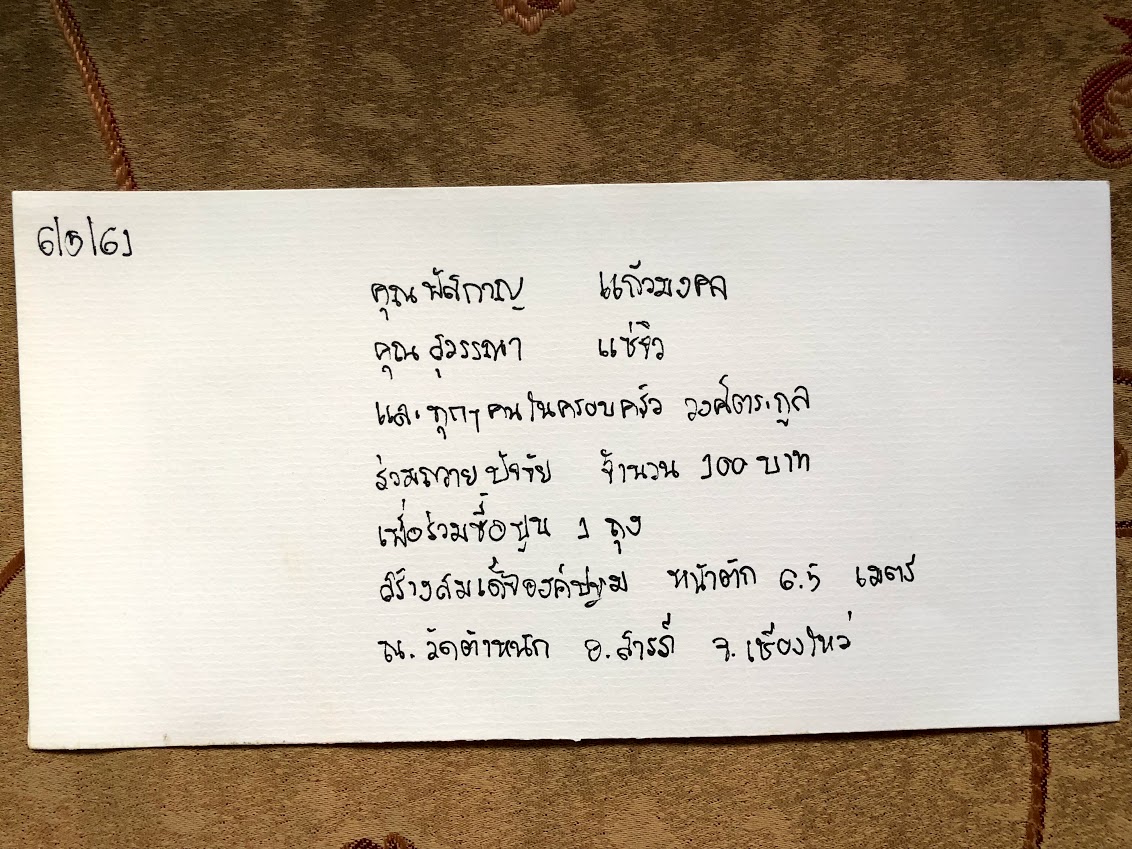 6/5/61
คุณพัสกาญ แก้วมงคล
คุณสุวรรณา แซ่จิว
และทุกๆคนในครอบครัว วงศ์ตระกูล
ร่วมถวายปัจจัย จำนวน 100 บาท
เพื่อร่วมซื้อปูน 1 ถุง
สร้างสมเด็จองค์ปฐม หน้าตัก 6.5 เมตร
ณ. วัดตำหนัก อ.สารภี จ.เชียงใหม่